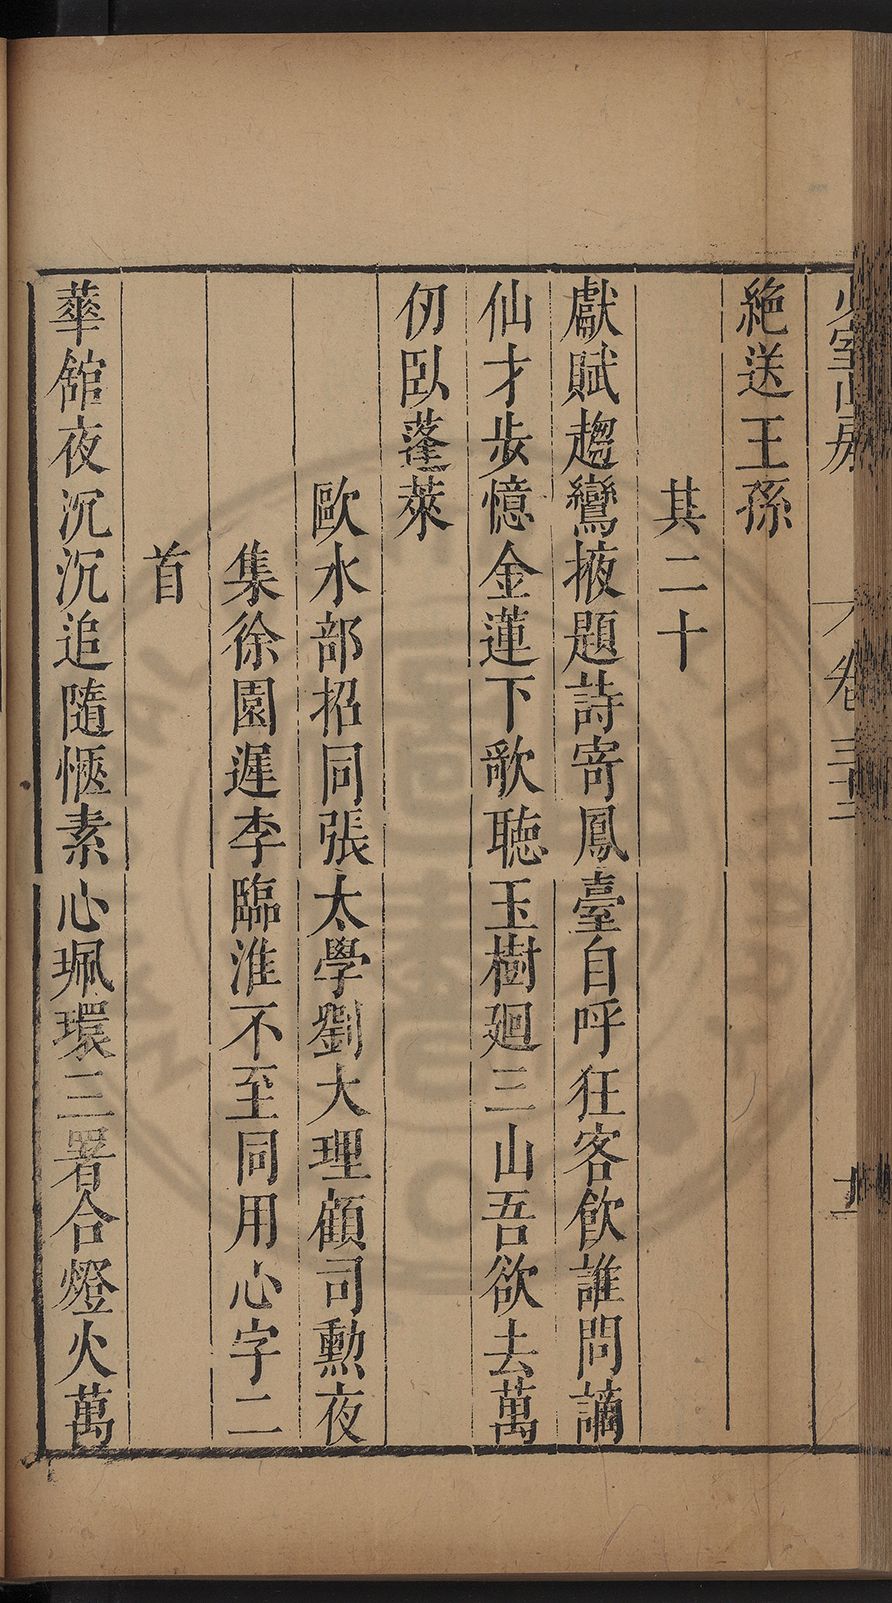 少室山房　卷三十三
絶送王孫
其二十
獻賦趨鸞掖題詩寄鳳臺自呼狂客飲誰問謫
仙才步憶金蓮下歌聽玉樹廻三山吾欲去萬
仞臥蓬萊
歐水部招同張太學劉大理顧司勲夜
集徐園遲李臨淮不至同用心字二
首
華舘夜沉沉追隨愜素心珮環三署合燈火萬